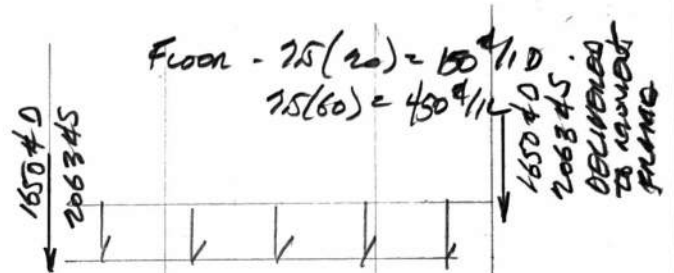 Floor - 7.5(20) = 150 #/1 D
7.5(60) = 450 #/1L
1650 # D
2063 # S
1650 # D
2063 # S.
DELIVERED
TO MOMENT
FRAME